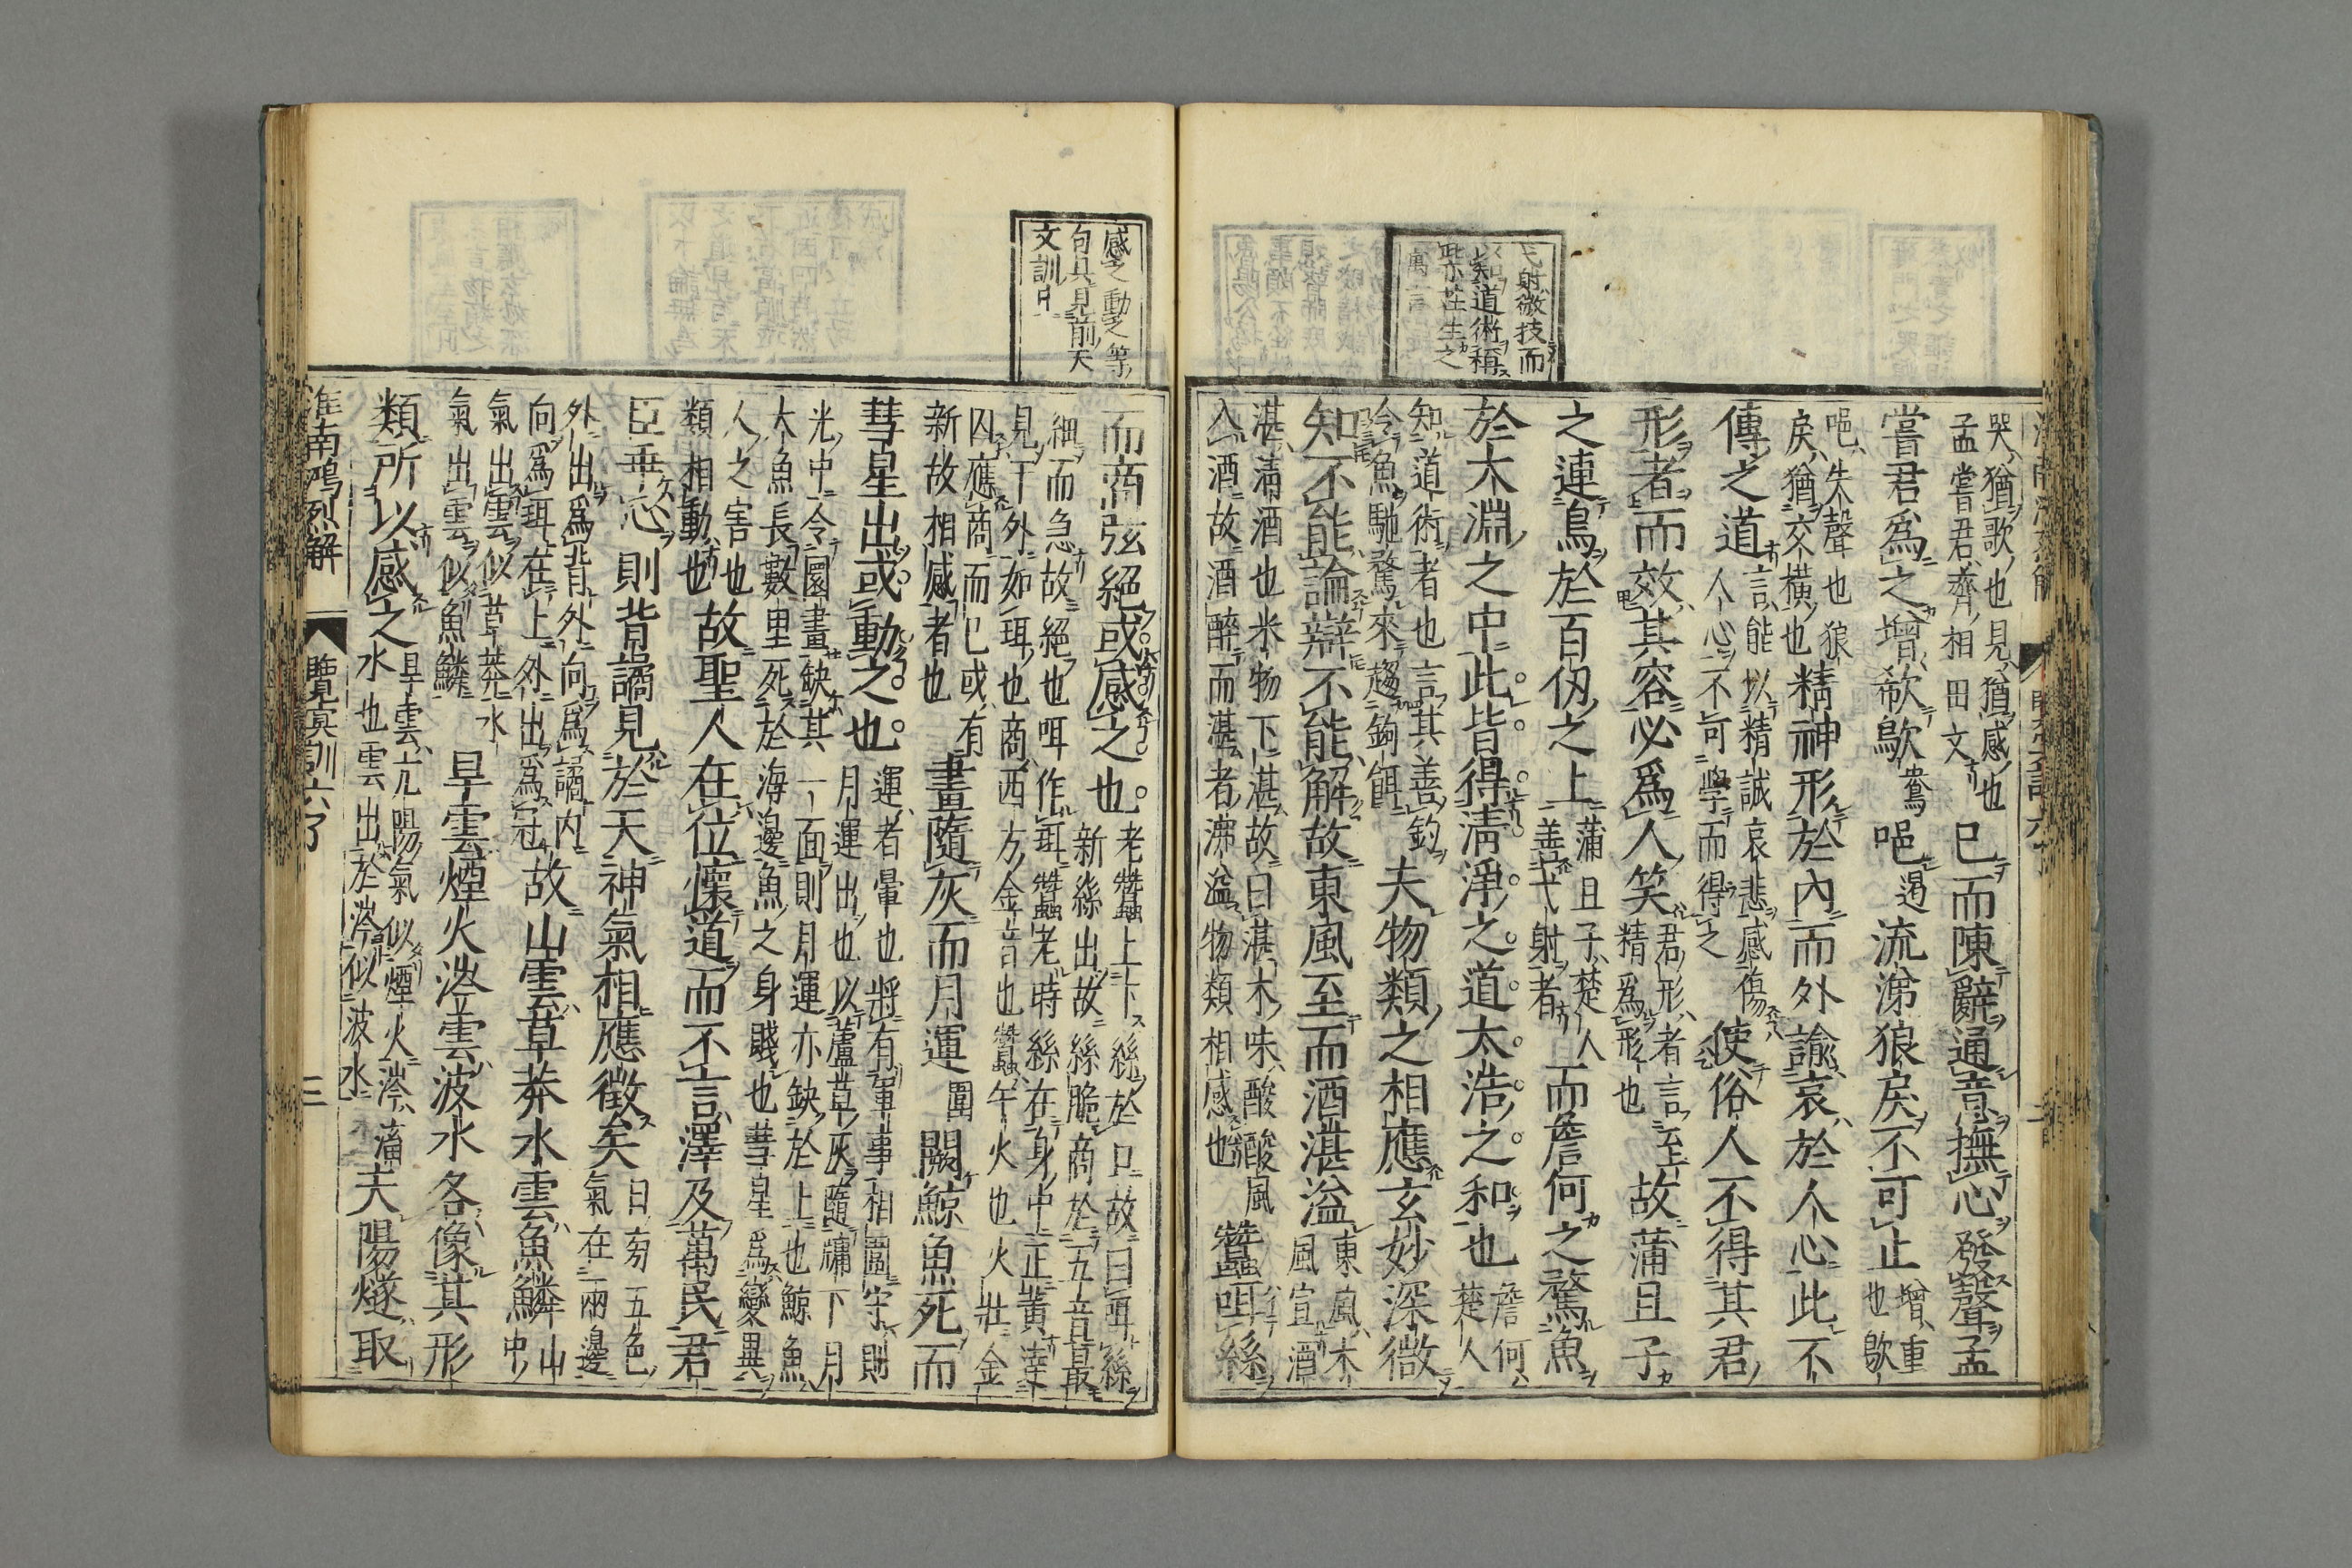 弋射微技而
道術稱
此亦莊生之
寓言
哭猶歌也見猶感也
孟嘗君齊相田文
已而陳辭通意撫心發聲孟
嘗君爲之增欷歍
鴦
唈
遏
流涕狼戾不可止
增重
也歍
唈失聲也狼
戾猶交橫也
精神形於內而外諭哀於人心此不
傳之道
言能以精誠哀悲感傷
人心不可學而得之
使俗人不得其君
形者而效其容必爲人笑
君形者言至
精爲形也
故蒲且子
之連鳥於百仞之上
蒲且子楚人
善弋射者
而詹何之騖魚
於大淵之中此皆得清淨之道太浩之和也
詹何
楚人
知道術者也言其善釣
令魚馳騖來趨鉤餌
夫物類之相應玄妙深微
知不能論辯不能解故東風至而酒湛溢
東風木
風宣酒
湛清酒也米物下湛故曰湛木味酸酸風
入酒故酒醉而湛者沸溢物類相感也
蠶咡絲
感之動之等
句具見前天
文訓
而商弦絕或感之也
老蠶上下絲於口故曰咡絲
新絲出故絲脆商於五音最
細而急故絕也咡作珥蠶老時絲在身中正黃達
見于外如珥也商西方金音也蠶午火也火壯金
囚應商而已或有
新故相感者也
畫隨灰而月運
圍
闕鯨魚死而
彗星出或動之也
運者暈也將有軍事相圍守則
月運出也以蘆草灰隨牖下月
光中令圜畫缺其一面則月運亦缺於上也鯨魚
大魚長數里死於海邊魚之身賤也彗星爲變異
人之害也
類相動也
故聖人在位懷道而不言澤及萬民君
臣乖心則背譎見於天神氣相應徵矣
日旁五色
氣在兩邊
外出爲背外向爲譎內
向爲珥在上外出爲冠
故山雲草莽水雲魚鱗
山
中
氣出雲似草莽水
氣出雲似魚鱗
旱雲煙火涔雲波水各像其形
類所以感之
旱雲亢陽氣似煙火涔潘
水也雲出於涔似波水
夫陽燧取
淮南鴻烈解
覽冥訓六
三